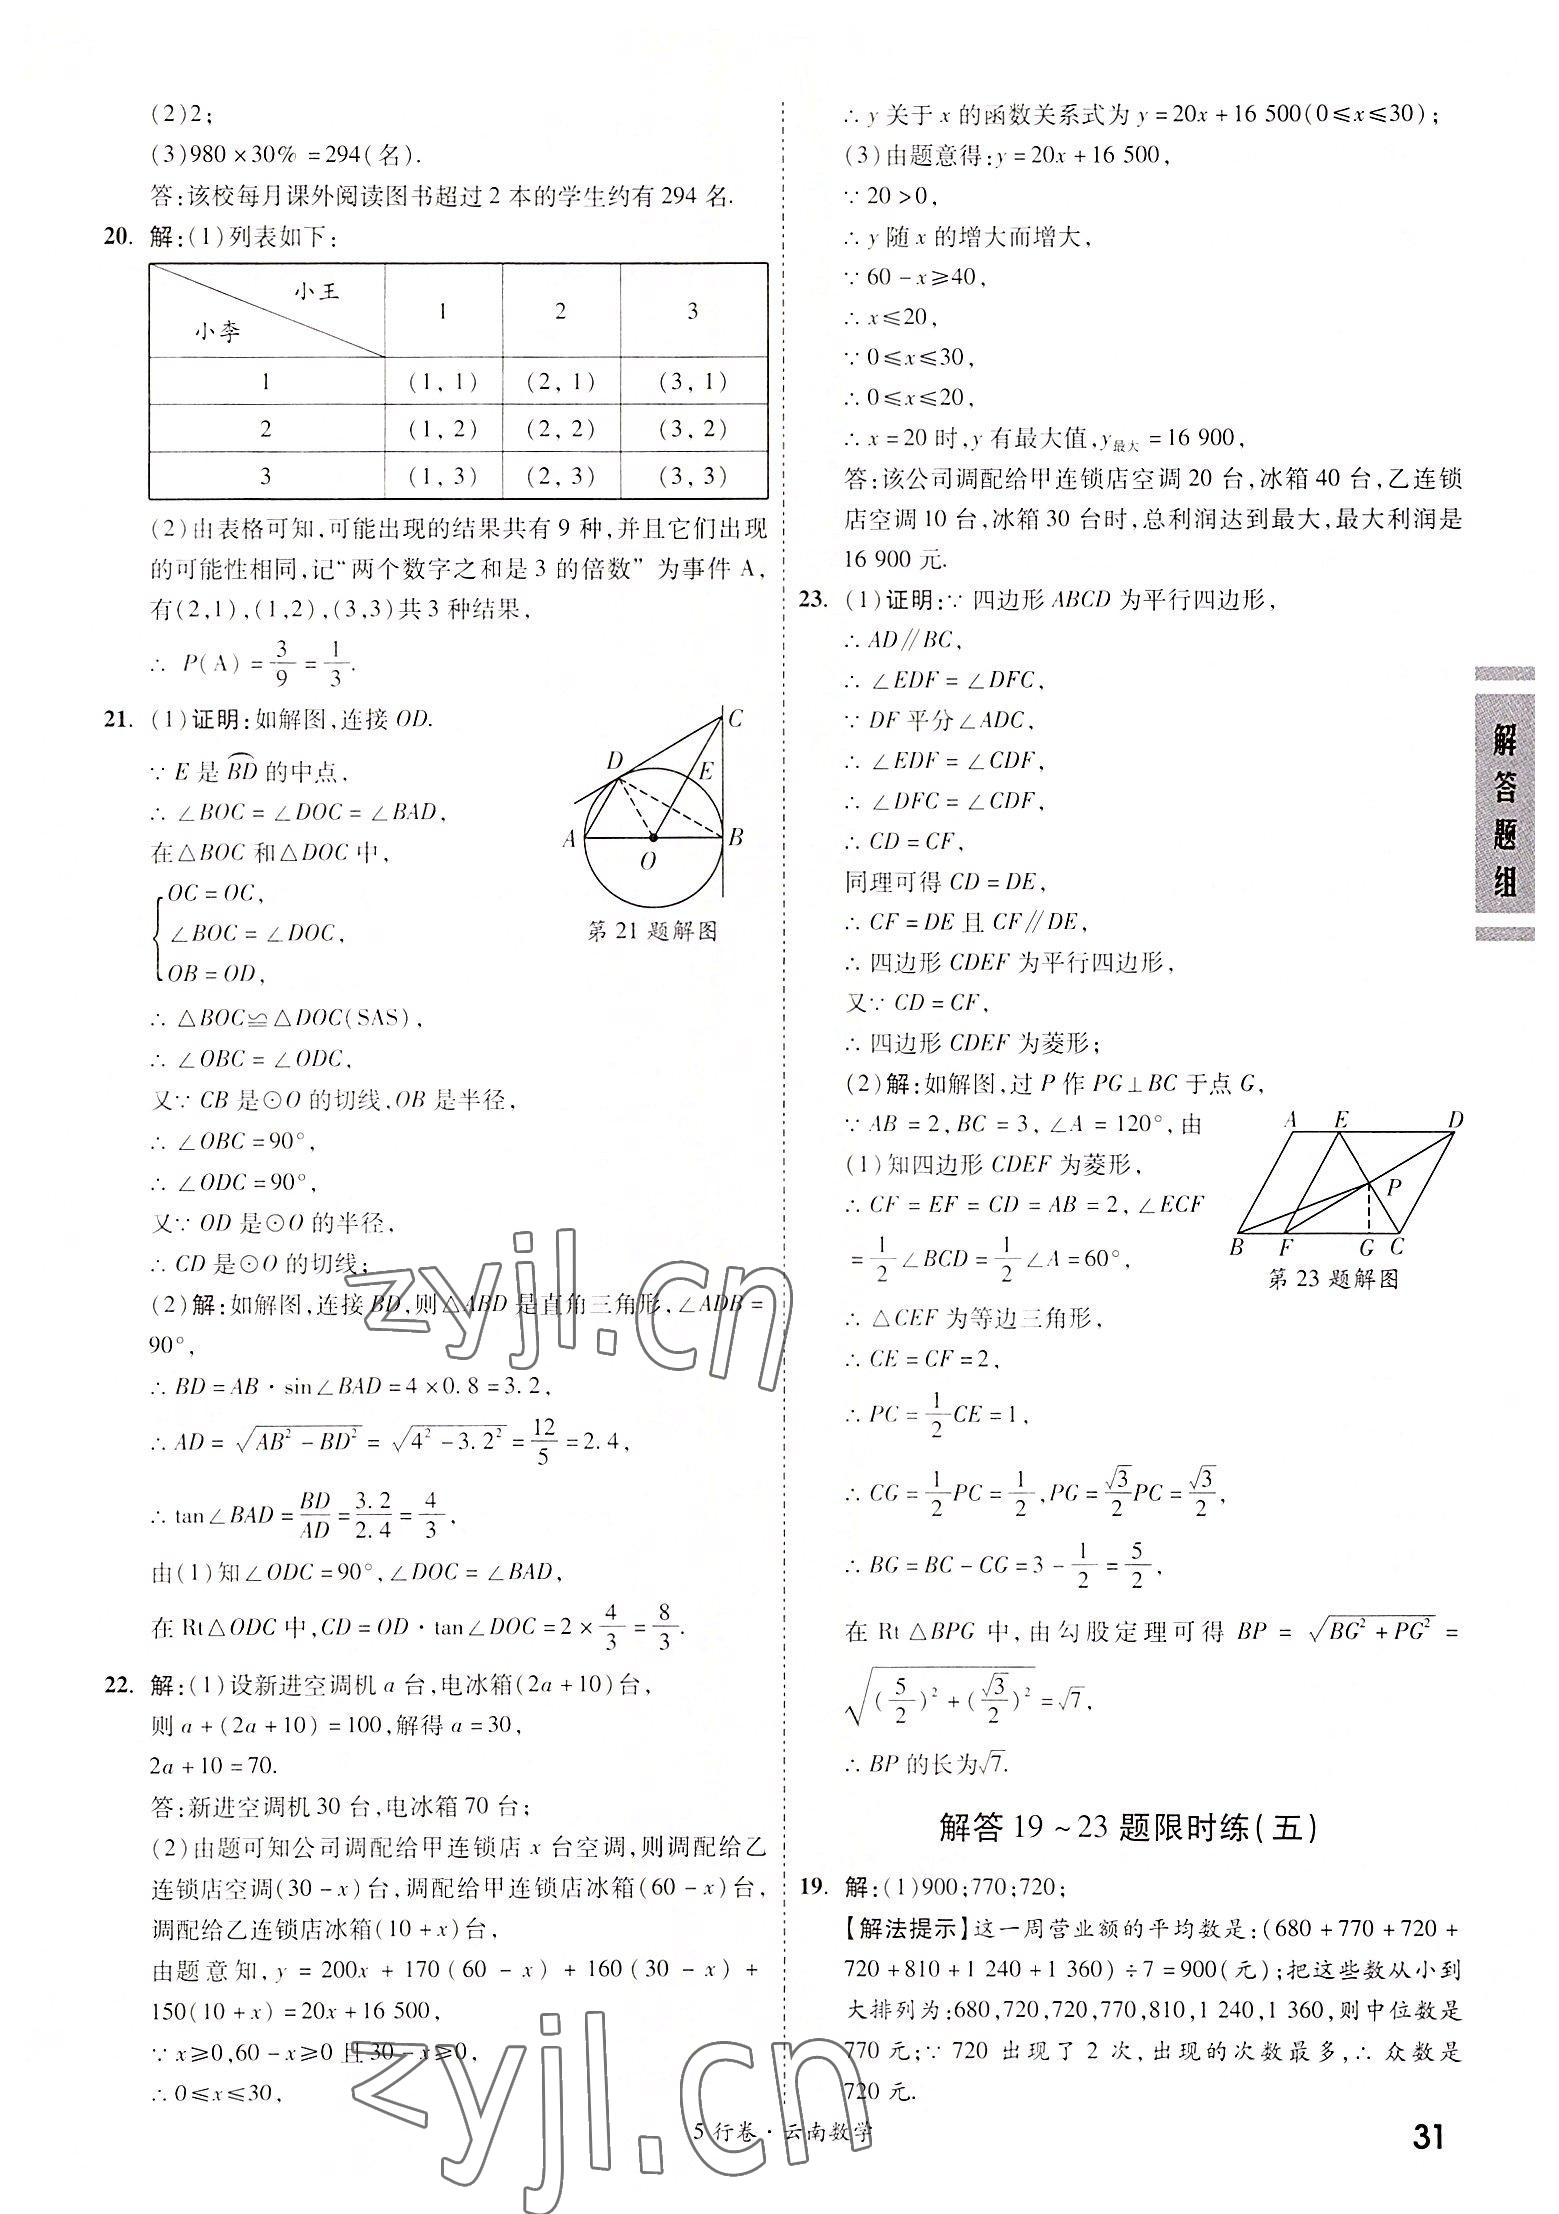 (2)2;
(3)980×30%=294(名).
答:该校每月课外阅读图书超过2本的学生约有294名.
20. 解:(1)列表如下:
小王 小李 1 2 3
1 (1,1) (2,1) (3,1)
2 (1,2) (2,2) (3,2)
3 (1,3) (2,3) (3,3)
(2)由表格可知,可能出现的结果共有9种,并且它们出现
的可能性相同,记“两个数字之和是3的倍数”为事件A,
有(2,1),(1,2),(3,3)共3种结果,
∴ P(A)=3/9=1/3.
21. (1)证明:如解图,连接OD.
∵E是⌒BD的中点,
∴∠BOC=∠DOC=∠BAD,
在△BOC和△DOC中,
{OC=OC,
∠BOC=∠DOC,
OB=OD,
∴△BOC≌△DOC(SAS),
∴∠OBC=∠ODC,
又∵CB是⊙O的切线,OB是半径,
∴∠OBC=90°,
∴∠ODC=90°,
又∵OD是⊙O的半径,
∴CD是⊙O的切线;
C
D
E
A
B
O
第21题解图
(2)解:如解图,连接BD,则△ABD是直角三角形,∠ADB=
90°,
∴BD=AB·sin∠BAD=4×0.8=3.2,
∴AD=√(AB²-BD²)=√(4²-3.2²)=12/5=2.4,
∴tan∠BAD=BD/AD=3.2/2.4=4/3,
由(1)知∠ODC=90°,∠DOC=∠BAD,
在Rt△ODC中,CD=OD·tan∠DOC=2×4/3=8/3.
22. 解:(1)设新进空调机a台,电冰箱(2a+10)台,
则a+(2a+10)=100,解得a=30,
2a+10=70.
答:新进空调机30台,电冰箱70台;
(2)由题可知公司调配给甲连锁店x台空调,则调配给乙
连锁店空调(30-x)台,调配给甲连锁店冰箱(60-x)台,
调配给乙连锁店冰箱(10+x)台,
由题意知,y=200x+170(60-x)+160(30-x)+
150(10+x)=20x+16 500,
∵x≥0,60-x≥0且30-x≥0,
∴0≤x≤30,
∴y关于x的函数关系式为y=20x+16 500(0≤x≤30);
(3)由题意得:y=20x+16 500,
∵20>0,
∴y随x的增大而增大,
∵60-x≥40,
∴x≤20,
∵0≤x≤30,
∴0≤x≤20,
∴x=20时,y有最大值,y最大=16 900,
答:该公司调配给甲连锁店空调20台,冰箱40台,乙连锁
店空调10台,冰箱30台时,总利润达到最大,最大利润是
16 900元.
23. (1)证明:∵四边形ABCD为平行四边形,
∴AD∥BC,
∴∠EDF=∠DFC,
∵DF平分∠ADC,
∴∠EDF=∠CDF,
∴∠DFC=∠CDF,
∴CD=CF,
同理可得CD=DE,
∴CF=DE且CF∥DE,
∴四边形CDEF为平行四边形,
又∵CD=CF,
∴四边形CDEF为菱形;
(2)解:如解图,过P作PG⊥BC于点G,
∵AB=2,BC=3,∠A=120°,由
(1)知四边形CDEF为菱形,
∴CF=EF=CD=AB=2,∠ECF
=1/2∠BCD=1/2∠A=60°,
A E D
P
B F G C
第23题解图
∴△CEF为等边三角形,
∴CE=CF=2,
∴PC=1/2CE=1,
∴CG=1/2PC=1/2,PG=√3/2PC=√3/2,
∴BG=BC-CG=3-1/2=5/2,
在Rt△BPG中,由勾股定理可得BP=√(BG²+PG²)=
√((5/2)²+(√3/2)²)=√7,
∴BP的长为√7.
解答19~23题限时练(五)
19. 解:(1)900;770;720;
【解法提示】这一周营业额的平均数是:(680+770+720+
720+810+1 240+1 360)÷7=900(元);把这些数从小到
大排列为:680,720,720,770,810,1 240,1 360,则中位数是
770元;∵720出现了2次,出现的次数最多,∴众数是
720元.
解答题组
5行卷·云南数学
31
zyjl.cn
zyjl.cn